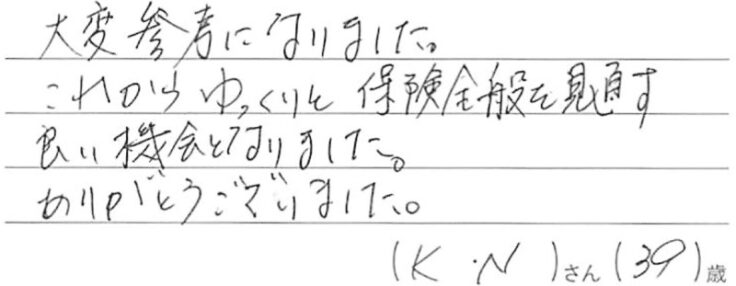 大変参考になりました。
これからゆっくりと保険全般を見直す
良い機会となりました。
ありがとうございました。
(K・N)さん(39)歳